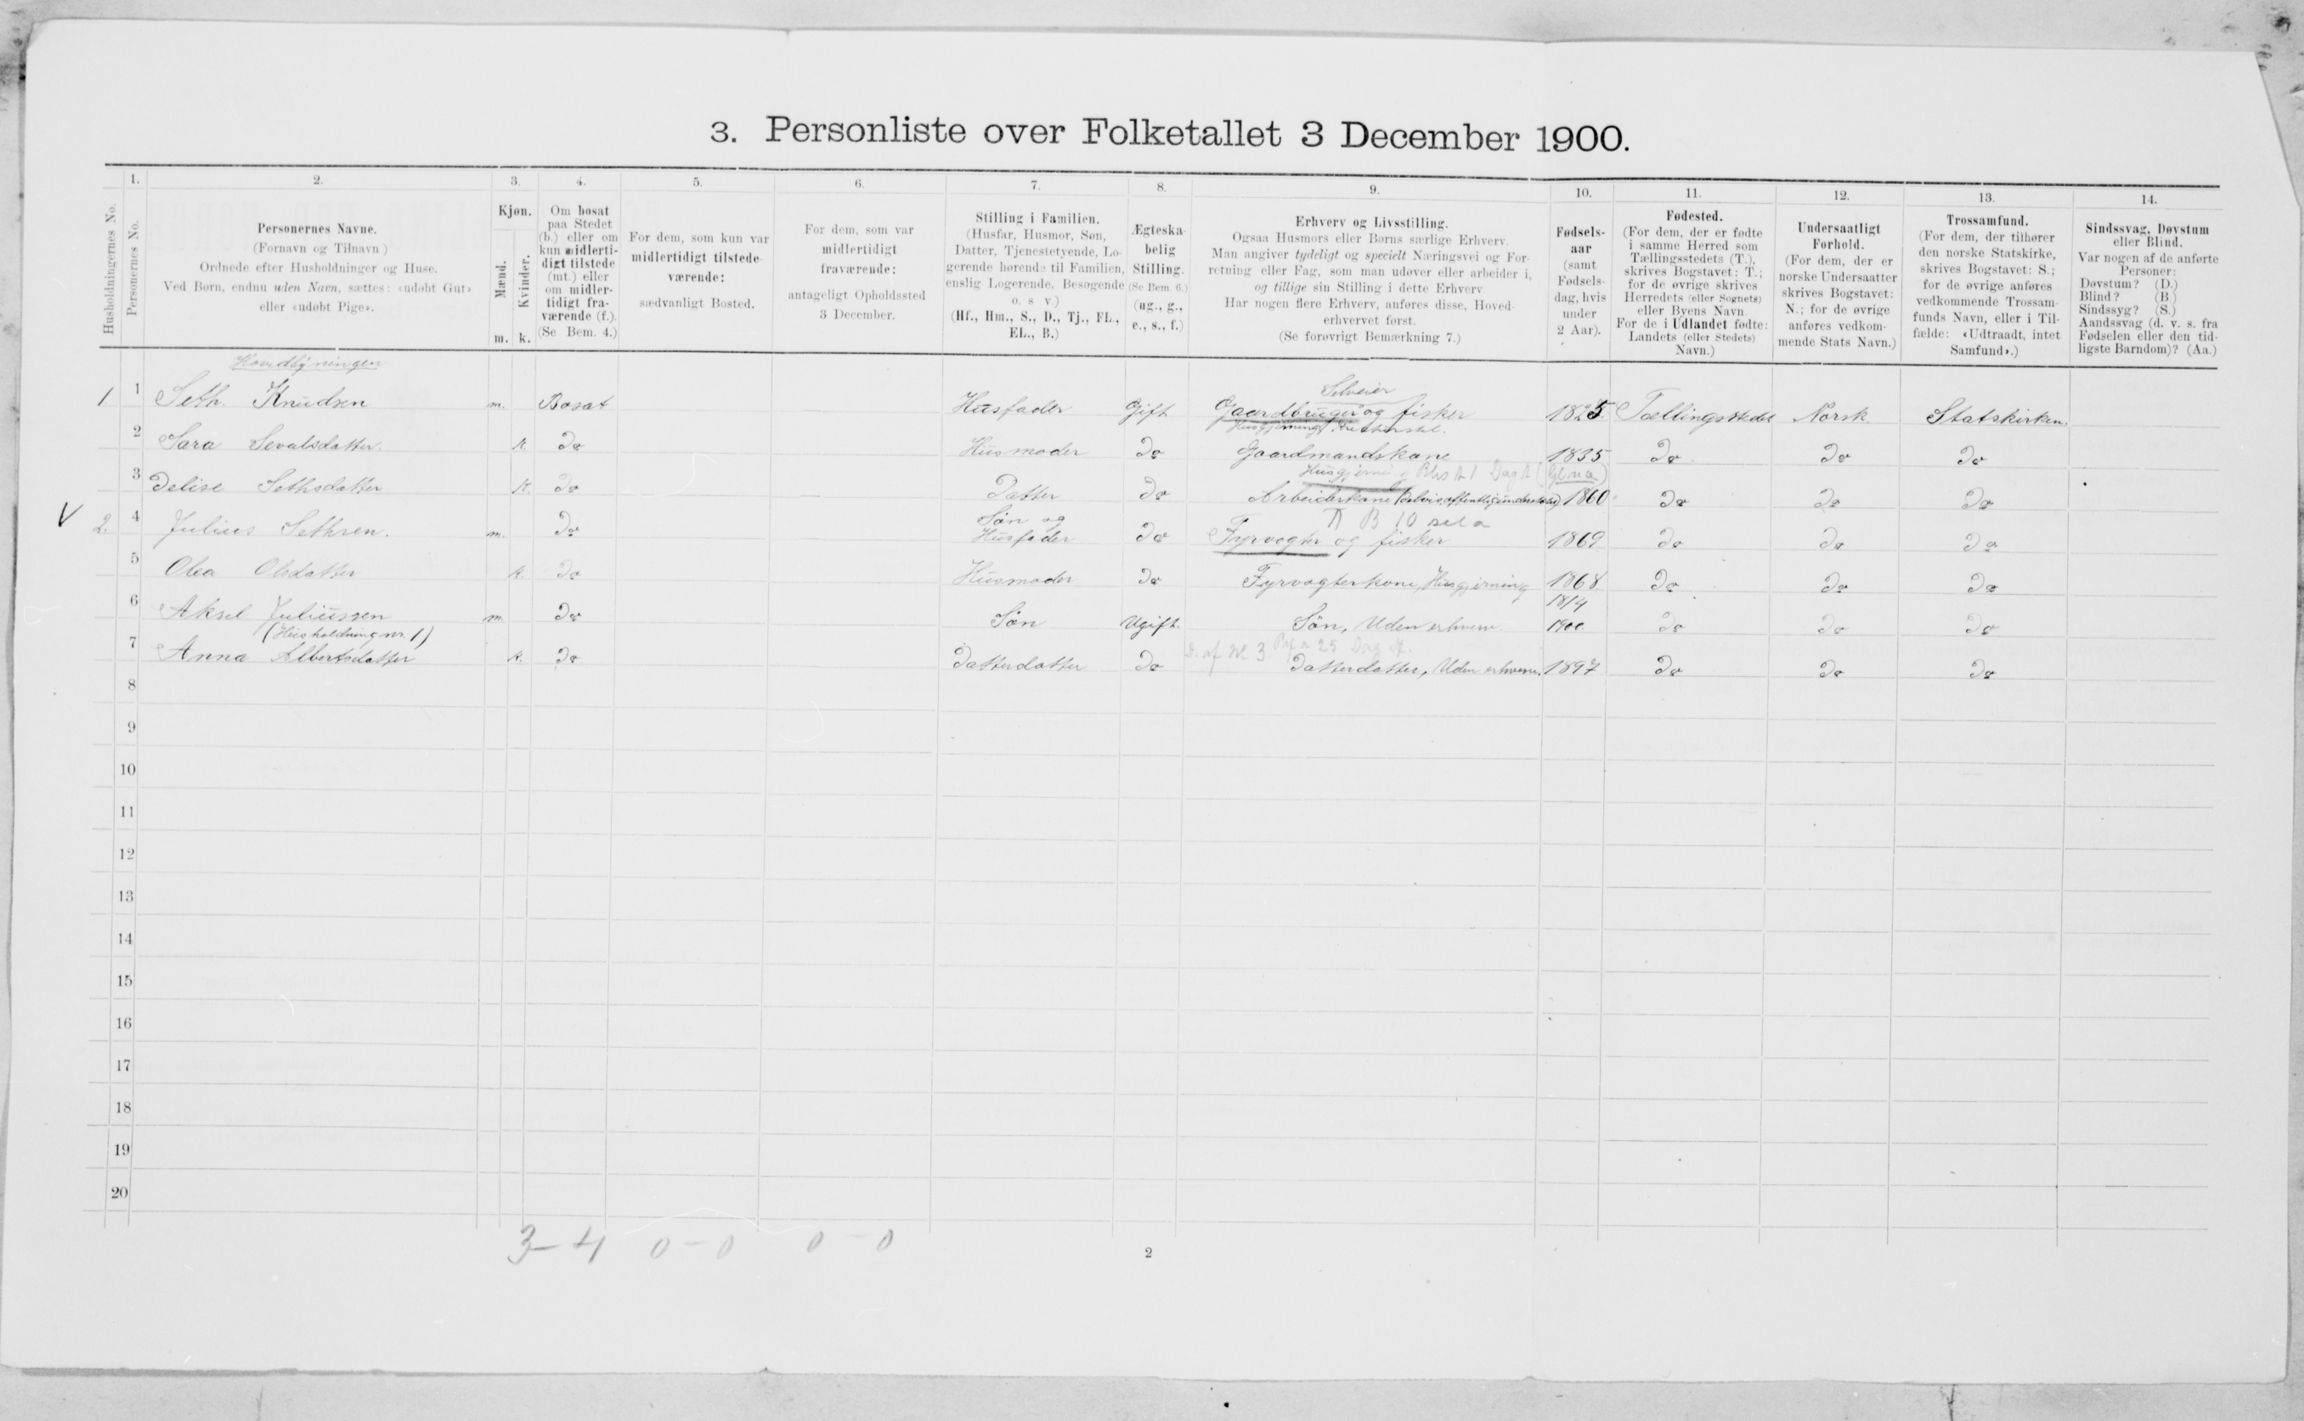 3. Personliste over Folketallet 3 December 1900.
1. 2. 3. 4. 5. 6. 7. 8. 9. 10. 11. 12. 13. 14.
Husholdningernes No.
Personernes No.
Personernes Navne.
(Fornavn og Tilnavn)
Ordnede efter Husholdninger og Huse.
Ved Børn, endnu uden Navn, sættes: «udøbt Gut»
eller «udøbt Pige».
Kjøn.
Mænd.
Kvinder.
m. k.
Om bosat
paa Stedet
(b.) eller om
kun midlerti-
digt tilstede
(mt.) eller
om midler-
tidigt fra-
værende (f.).
(Se Bem. 4.)
For dem, som kun var
midlertidigt tilstede-
værende:
sædvanligt Bosted.
For dem, som var
midlertidigt
fraværende:
antageligt Opholdssted
3 December.
Stilling i Familien.
(Husfar, Husmor, Søn,
Datter, Tjenestetyende, Lo-
gerende hørende til Familien,
enslig Logerende, Besøgende
o. s v.)
(Hf., Hm., S., D., Tj., FL.,
EL., B.)
Ægteska-
belig
Stilling.
(Se Bem. 6.)
(ug., g.,
e., s., f.)
Erhverv og Livsstilling.
Ogsaa Husmors eller Børns særlige Erhverv.
Man angiver tydeligt og specielt Næringsvei og For-
retning eller Fag, som man udøver eller arbeider i,
og tillige sin Stilling i dette Erhverv.
Har nogen flere Erhverv, anføres disse, Hoved-
erhvervet først.
(Se forøvrigt Bemærkning 7.)
Fødsels-
aar
(samt
Fødsels-
dag, hvis
under
2 Aar).
Fødested.
(For dem, der er fødte
i samme Herred som
Tællingsstedets (T.),
skrives Bogstavet: T.;
for de øvrige skrives
Herredets (eller Sognets)
eller Byens Navn.
For de i Udlandet fødte:
Landets (eller Stedets)
Navn.)
Undersaatligt
Forhold.
(For dem, der er
norske Undersaatter
skrives Bogstavet:
N.; for de øvrige
anføres vedkom-
mende Stats Navn.)
Trossamfund.
(For dem, der tilhører
den norske Statskirke,
skrives Bogstavet: S.;
for de øvrige anføres
vedkommende Trossam-
funds Navn, eller i Til-
fælde: «Udtraadt, intet
Samfund».)
Sindssvag, Døvstum
eller Blind.
Var nogen af de anførte
Personer:
Døvstum? (D.)
Blind? (B.)
Sindssyg? (S.)
Aandssvag (d. v. s. fra
Fødselen eller den tid-
ligste Barndom)? (Aa.)
Hovedbygningen
Selveier
1 1 Seth Knudsen m. Bosat Husfader Gift Gaardbruger og fisker 1825 Tællingsstedet Norsk. Statskirken.
Husgjerning
2 Sara Sevalsdatter. K. Do Husmoder Do Gaardmandskone 1835 Do Do Do
3 Delise Sethsdatter K. Do Datter Do Arbeiderkone 1860 Do Do Do
Søn og
V 2. 4 Julius Sethsen. m. Do Husfader Do Fyrvogter og fisker 1869 Do Do Do
5 Olea Olsdatter K. Do Husmoder Do Fyrvogterkone, Husgjerning 1868 Do Do Do
18/4
6 Aksel Juliussen m. Do Søn Ugift. Søn, Uden erhverv. 1900. Do Do Do
(Husholdning nr. 1)
D. af No 3.
7 Anna Albertsdatter K. Do Datterdatter Do Datterdatter, Uden erhverv. 1897 Do Do Do
8
9
10
11
12
13
14
15
16
17
18
19
20
3-4 0-0 0-0
2